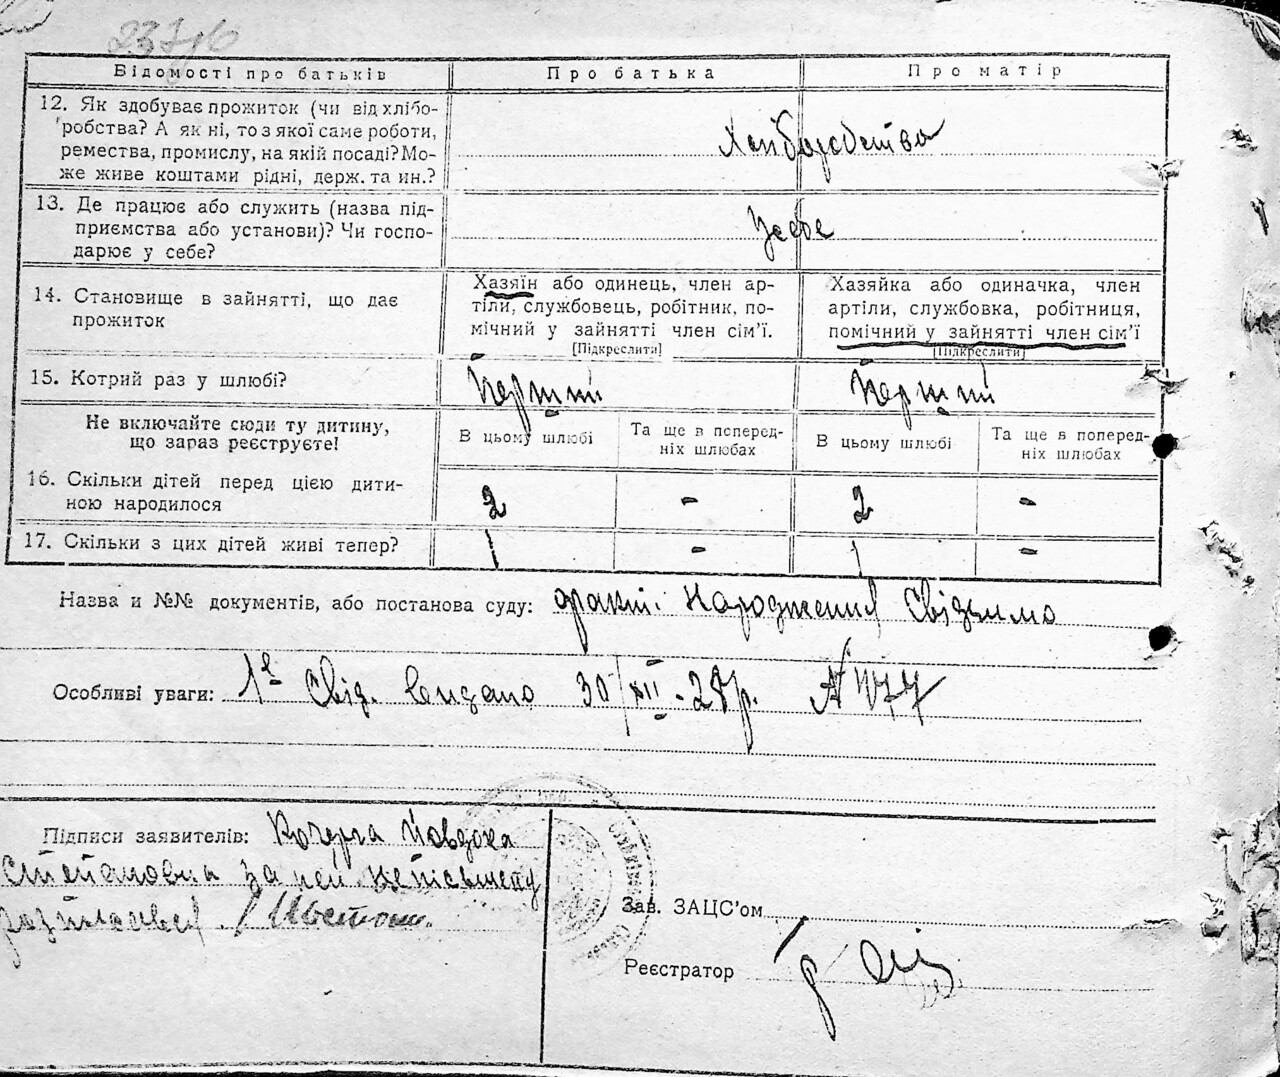 23716
Відомості про батьків Про батька Про матір
12. Як здобуває прожиток (чи від хлібо-
робства? А як ні, то з якої саме роботи,
ремества, промислу, на якій посаді? Мо-
же живе коштами рідні, держ. та ин.?
Хліборобства
13. Де працює або служить (назва під-
приємства або установи)? Чи госпо-
дарює у себе?
У себе
14. Становище в зайнятті, що дає
прожиток
Хазяїн або одинець, член ар-
тіли, службовець, робітник, по-
мічний у зайнятті член сім'ї.
[Підкреслити]
Хазяйка або одиначка, член
артіли, службовка, робітниця,
помічний у зайнятті член сім'ї
[Підкреслити]
15. Котрий раз у шлюбі? Перший Перший
Не включайте сюди ту дитину,
що зараз реєструєте!
В цьому шлюбі
Та ще в поперед-
ніх шлюбах
В цьому шлюбі
Та ще в поперед-
ніх шлюбах
16. Скільки дітей перед цією дити-
ною народилося
2 - 2 -
17. Скільки з цих дітей живі тепер? 1 - 1 -
Назва и №№ документів, або постанова суду: факт. Народження
Особливі уваги: 1е Свід. видано 30/XII-28р. №
Підписи заявителів: Кочерга Йовдоха
Степановна за неї неписьмену
розписався
Зав. ЗАЦС'ом
Реєстратор